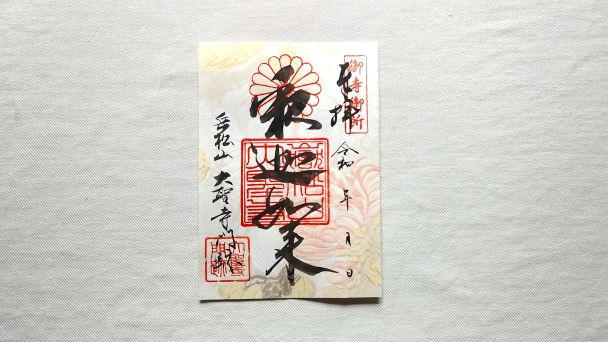 御寺御所
奉拝
令和 年 月 日
釈迦如来
岳松山 大聖寺門跡